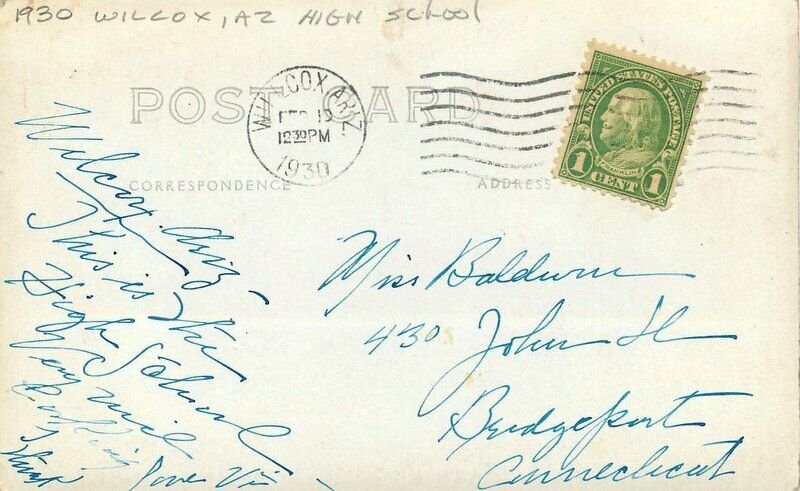 1930 WILCOX, AZ HIGH SCHOOL
POST CARD
WILLCOX, ARIZ.
FEB 19
12 30 PM
1930
UNITED STATES POSTAGE
FRANKLIN
1 CENT 1
CORRESPONDENCE
ADDRESS
Wilcox. Ariz -
This is the
High School
Very nice
looking
I think
Love Vi -
Miss Baldwin
430 John St
Bridgeport
Connecticut